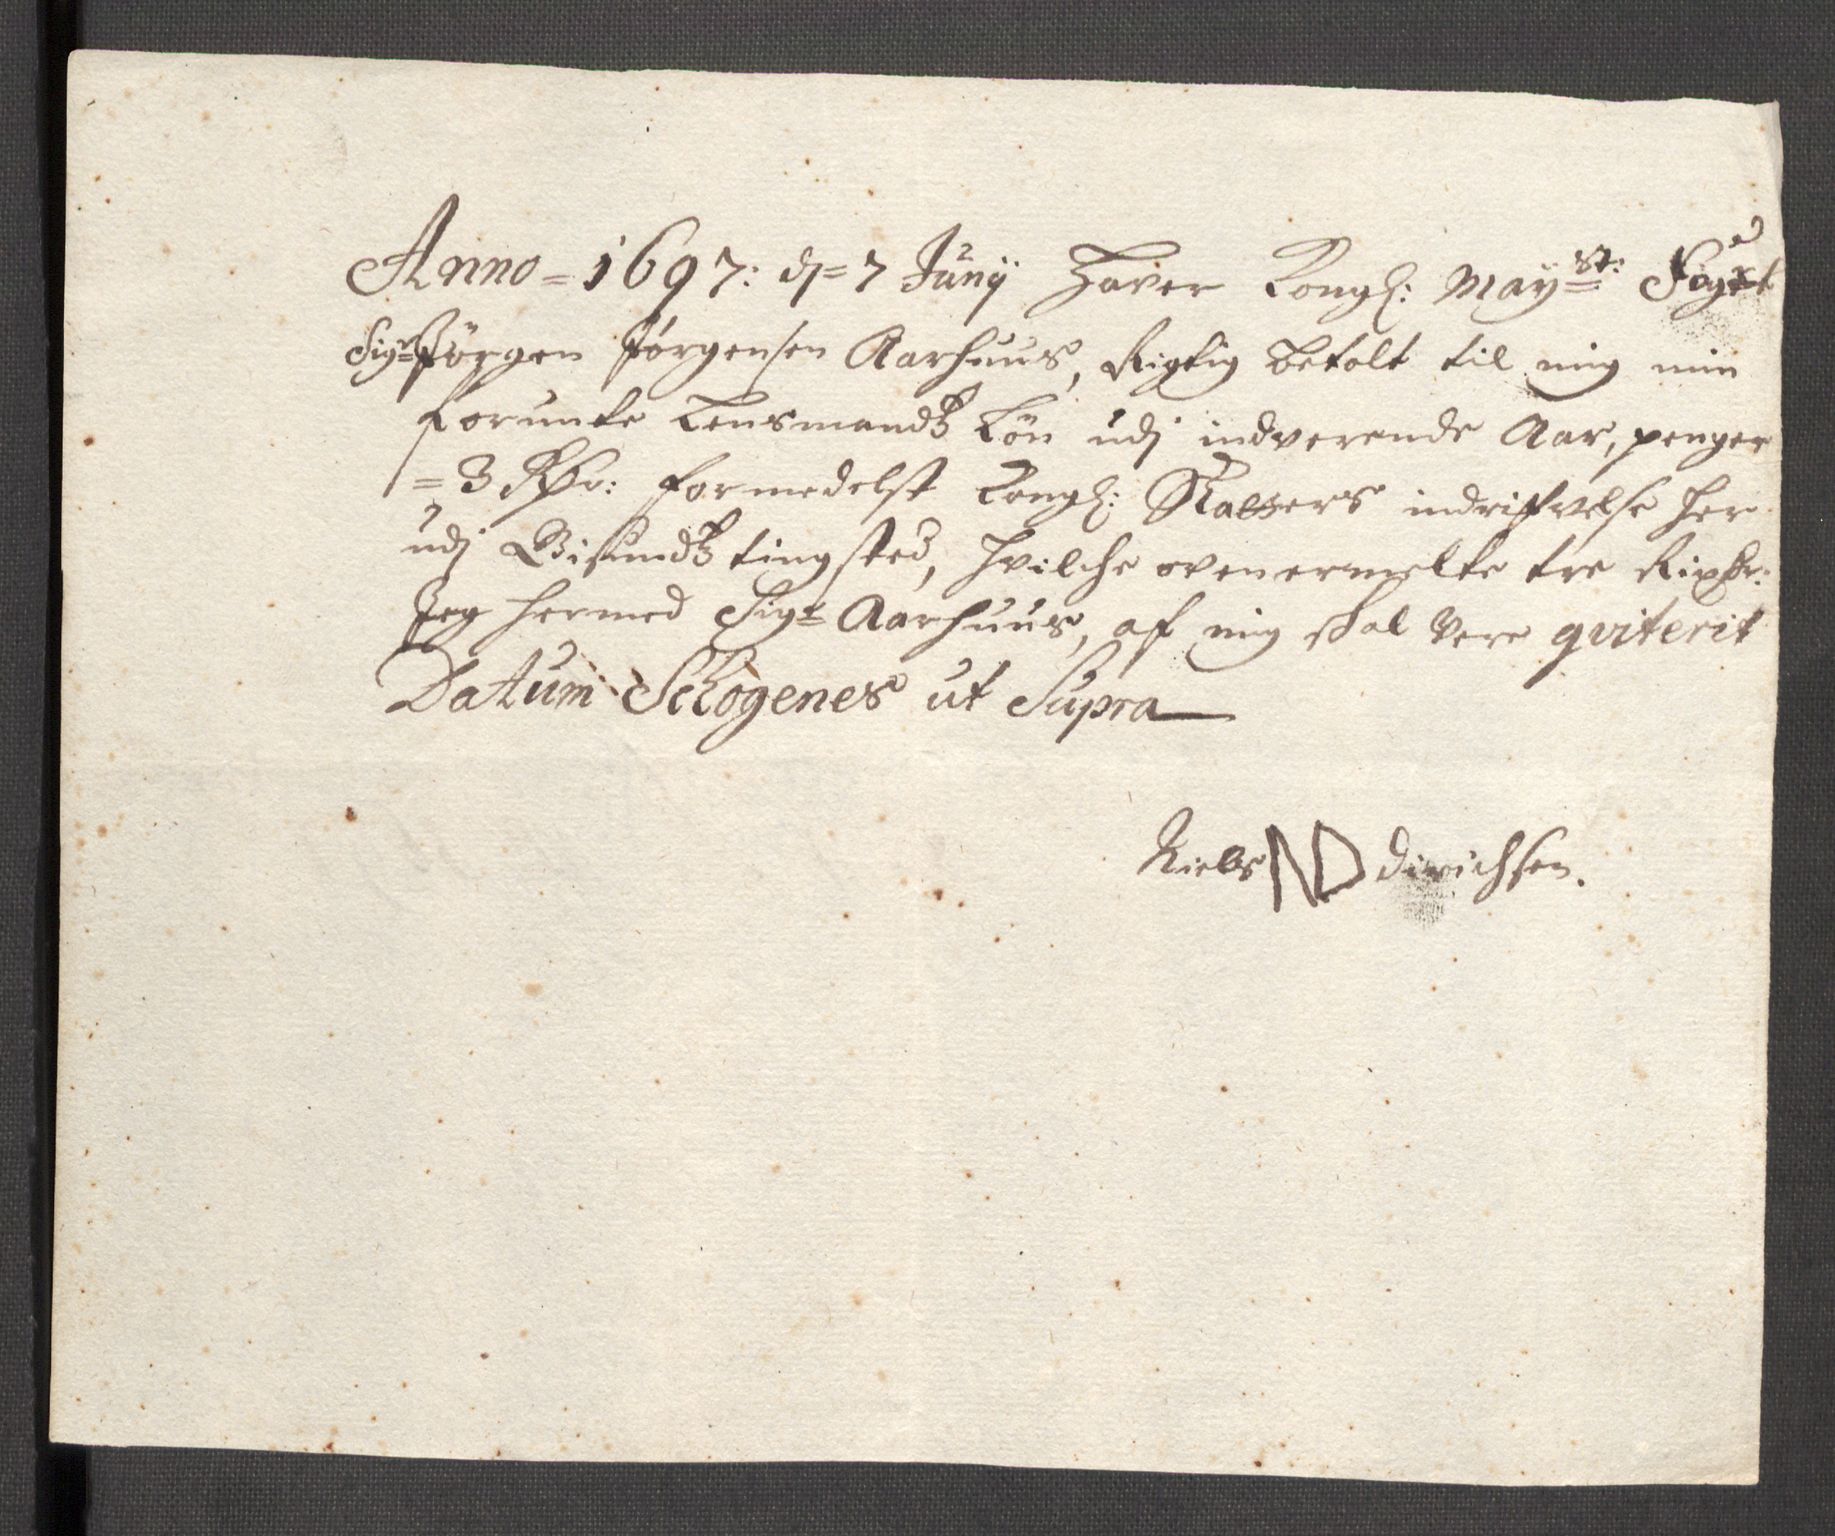 Anno = 1697: d = 7 Junÿ Haver Kongl: Maÿst: Foget
Sigr Jørgen Jørgensen Aarhuus, Rigtig betalt til mig min
forunte Lensmandtz Løn udj indverende Aar, penger
= 3 Rdr: formedelst Kongl: Skatters indrifvelse her
udj Gisundtz tingsted, hvilche ovenermelte tre Rixdr:
Jeg hermed Sigr Aarhuus, af mig skal vere qviterit
Datum Schogenes ut Supra
Niels ND Dirichsen.